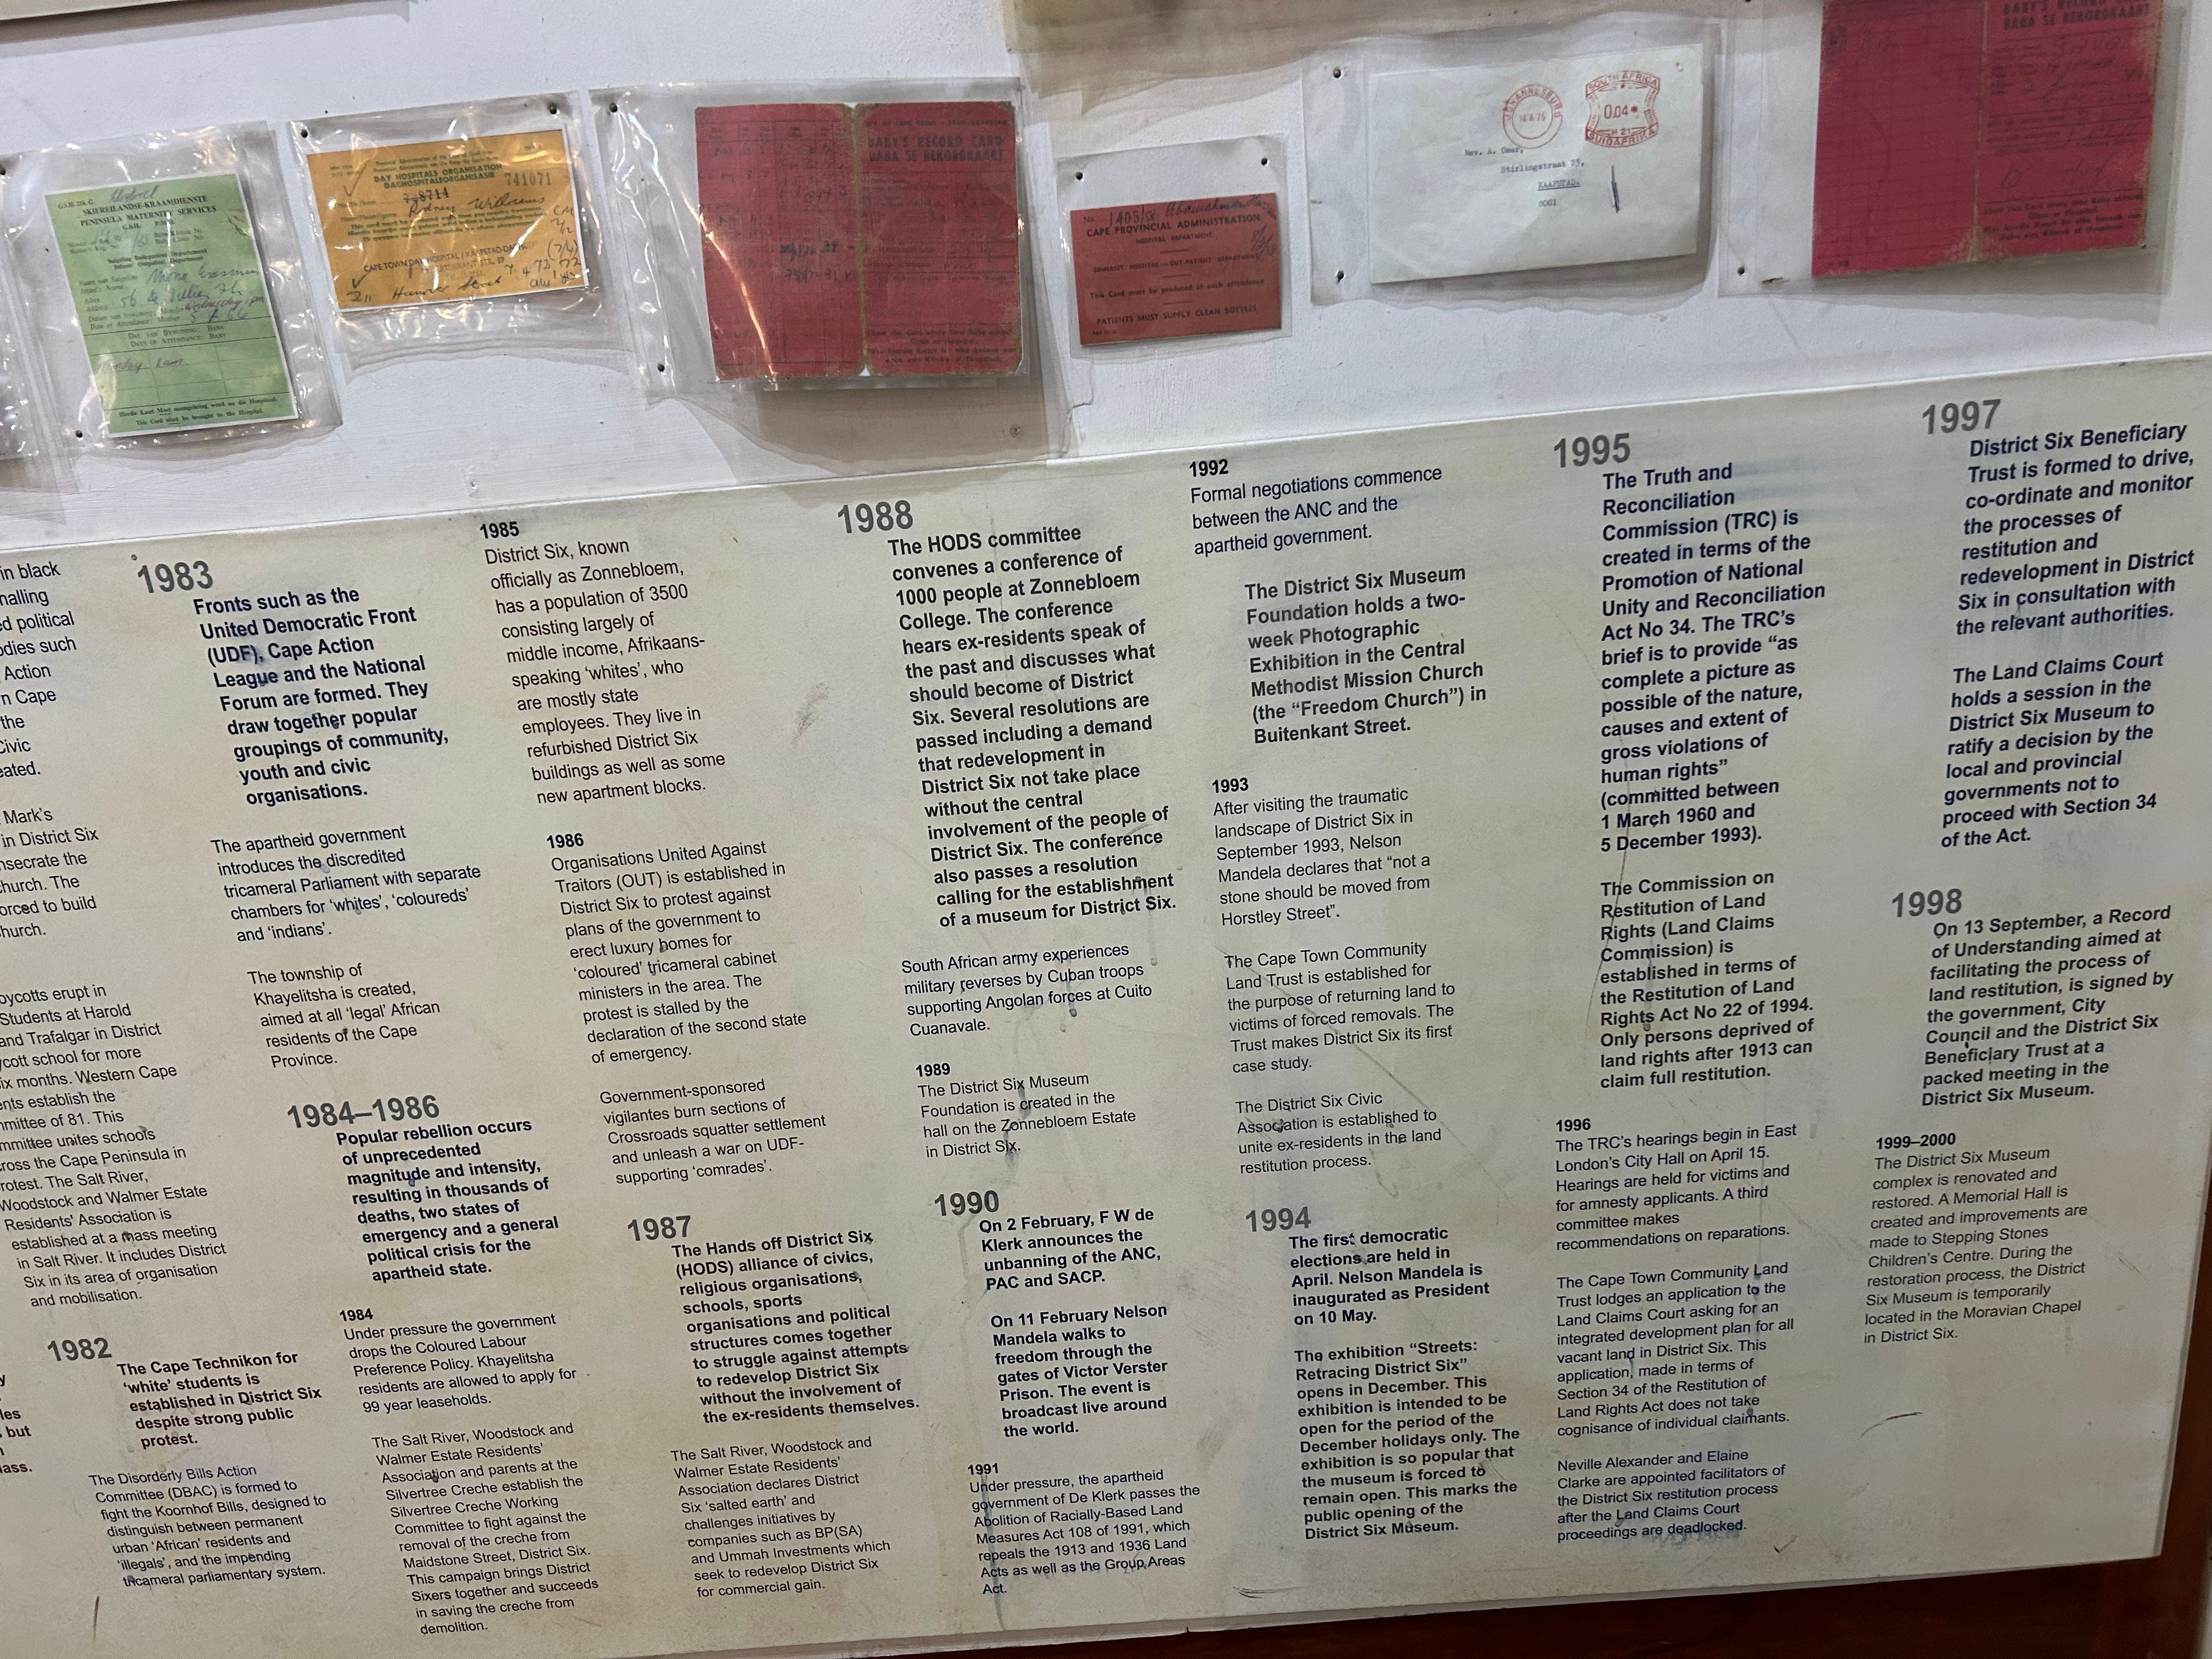 G.S.H. 218. G.
SKIEREILANDSE-KRAAMDIENSTE
PENINSULA MATERNITY SERVICES
G.S.H.
Monday
This Card must be brought to the Hospital.
DAY HOSPITALS ORGANISATION
DAGHOSPITALEORGANISASIE
741071
8714
Rodney Williams
CAPE TOWN DAY HOSPITAL
Hanover Street
BABY'S RECORD CARD
BABA SE REKORDKAART
No. 1405/
CAPE PROVINCIAL ADMINISTRATION
HOSPITAL DEPARTMENT
SOMERSET HOSPITAL—OUT-PATIENT DEPARTMENT
This Card must be produced at each attendance
PATIENTS MUST SUPPLY CLEAN BOTTLES
JOHANNESBURG
SOUTH AFRICA
004
SUID-AFRIKA
Mev. A. Omar,
Stirlingstraat 25,
KAAPSTAD.
8001
BABY'S RECORD CARD
BABA SE REKORDKAART
in black
nalling
d political
odies such
Action
n Cape
the
Civic
eated.
Mark's
in District Six
nsecrate the
hurch. The
orced to build
hurch.
oycotts erupt in
Students at Harold
and Trafalgar in District
ycott school for more
ix months. Western Cape
ents establish the
mmittee of 81. This
mmittee unites schools
ross the Cape Peninsula in
rotest. The Salt River,
Woodstock and Walmer Estate
Residents' Association is
established at a mass meeting
in Salt River. It includes District
Six in its area of organisation
and mobilisation.
y
les
but
n
ass.
1982
The Cape Technikon for
'white' students is
established in District Six
despite strong public
protest.
The Disorderly Bills Action
Committee (DBAC) is formed to
fight the Koornhof Bills, designed to
distinguish between permanent
urban 'African' residents and
'illegals', and the impending
tricameral parliamentary system.
1983
Fronts such as the
United Democratic Front
(UDF), Cape Action
League and the National
Forum are formed. They
draw together popular
groupings of community,
youth and civic
organisations.
The apartheid government
introduces the discredited
tricameral Parliament with separate
chambers for 'whites', 'coloureds'
and 'indians'.
The township of
Khayelitsha is created,
aimed at all 'legal' African
residents of the Cape
Province.
1984–1986
Popular rebellion occurs
of unprecedented
magnitude and intensity,
resulting in thousands of
deaths, two states of
emergency and a general
political crisis for the
apartheid state.
1984
Under pressure the government
drops the Coloured Labour
Preference Policy. Khayelitsha
residents are allowed to apply for
99 year leaseholds.
The Salt River, Woodstock and
Walmer Estate Residents'
Association and parents at the
Silvertree Creche establish the
Silvertree Creche Working
Committee to fight against the
removal of the creche from
Maidstone Street, District Six.
This campaign brings District
Sixers together and succeeds
in saving the creche from
demolition.
1985
District Six, known
officially as Zonnebloem,
has a population of 3500
consisting largely of
middle income, Afrikaans-
speaking 'whites', who
are mostly state
employees. They live in
refurbished District Six
buildings as well as some
new apartment blocks.
1986
Organisations United Against
Traitors (OUT) is established in
District Six to protest against
plans of the government to
erect luxury homes for
'coloured' tricameral cabinet
ministers in the area. The
protest is stalled by the
declaration of the second state
of emergency.
Government-sponsored
vigilantes burn sections of
Crossroads squatter settlement
and unleash a war on UDF-
supporting 'comrades'.
1987
The Hands off District Six
(HODS) alliance of civics,
religious organisations,
schools, sports
organisations and political
structures comes together
to struggle against attempts
to redevelop District Six
without the involvement of
the ex-residents themselves.
The Salt River, Woodstock and
Walmer Estate Residents'
Association declares District
Six 'salted earth' and
challenges initiatives by
companies such as BP(SA)
and Ummah Investments which
seek to redevelop District Six
for commercial gain.
1988
The HODS committee
convenes a conference of
1000 people at Zonnebloem
College. The conference
hears ex-residents speak of
the past and discusses what
should become of District
Six. Several resolutions are
passed including a demand
that redevelopment in
District Six not take place
without the central
involvement of the people of
District Six. The conference
also passes a resolution
calling for the establishment
of a museum for District Six.
South African army experiences
military reverses by Cuban troops
supporting Angolan forces at Cuito
Cuanavale.
1989
The District Six Museum
Foundation is created in the
hall on the Zonnebloem Estate
in District Six.
1990
On 2 February, F W de
Klerk announces the
unbanning of the ANC,
PAC and SACP.
On 11 February Nelson
Mandela walks to
freedom through the
gates of Victor Verster
Prison. The event is
broadcast live around
the world.
1991
Under pressure, the apartheid
government of De Klerk passes the
Abolition of Racially-Based Land
Measures Act 108 of 1991, which
repeals the 1913 and 1936 Land
Acts as well as the Group Areas
Act.
1992
Formal negotiations commence
between the ANC and the
apartheid government.
The District Six Museum
Foundation holds a two-
week Photographic
Exhibition in the Central
Methodist Mission Church
(the "Freedom Church") in
Buitenkant Street.
1993
After visiting the traumatic
landscape of District Six in
September 1993, Nelson
Mandela declares that "not a
stone should be moved from
Horstley Street".
The Cape Town Community
Land Trust is established for
the purpose of returning land to
victims of forced removals. The
Trust makes District Six its first
case study.
The District Six Civic
Association is established to
unite ex-residents in the land
restitution process.
1994
The first democratic
elections are held in
April. Nelson Mandela is
inaugurated as President
on 10 May.
The exhibition "Streets:
Retracing District Six"
opens in December. This
exhibition is intended to be
open for the period of the
December holidays only. The
exhibition is so popular that
the museum is forced to
remain open. This marks the
public opening of the
District Six Museum.
1995
The Truth and
Reconciliation
Commission (TRC) is
created in terms of the
Promotion of National
Unity and Reconciliation
Act No 34. The TRC's
brief is to provide "as
complete a picture as
possible of the nature,
causes and extent of
gross violations of
human rights"
(committed between
1 March 1960 and
5 December 1993).
The Commission on
Restitution of Land
Rights (Land Claims
Commission) is
established in terms of
the Restitution of Land
Rights Act No 22 of 1994.
Only persons deprived of
land rights after 1913 can
claim full restitution.
1996
The TRC's hearings begin in East
London's City Hall on April 15.
Hearings are held for victims and
for amnesty applicants. A third
committee makes
recommendations on reparations.
The Cape Town Community Land
Trust lodges an application to the
Land Claims Court asking for an
integrated development plan for all
vacant land in District Six. This
application, made in terms of
Section 34 of the Restitution of
Land Rights Act does not take
cognisance of individual claimants.
Neville Alexander and Elaine
Clarke are appointed facilitators of
the District Six restitution process
after the Land Claims Court
proceedings are deadlocked.
1997
District Six Beneficiary
Trust is formed to drive,
co-ordinate and monitor
the processes of
restitution and
redevelopment in District
Six in consultation with
the relevant authorities.
The Land Claims Court
holds a session in the
District Six Museum to
ratify a decision by the
local and provincial
governments not to
proceed with Section 34
of the Act.
1998
On 13 September, a Record
of Understanding aimed at
facilitating the process of
land restitution, is signed by
the government, City
Council and the District Six
Beneficiary Trust at a
packed meeting in the
District Six Museum.
1999–2000
The District Six Museum
complex is renovated and
restored. A Memorial Hall is
created and improvements are
made to Stepping Stones
Children's Centre. During the
restoration process, the District
Six Museum is temporarily
located in the Moravian Chapel
in District Six.